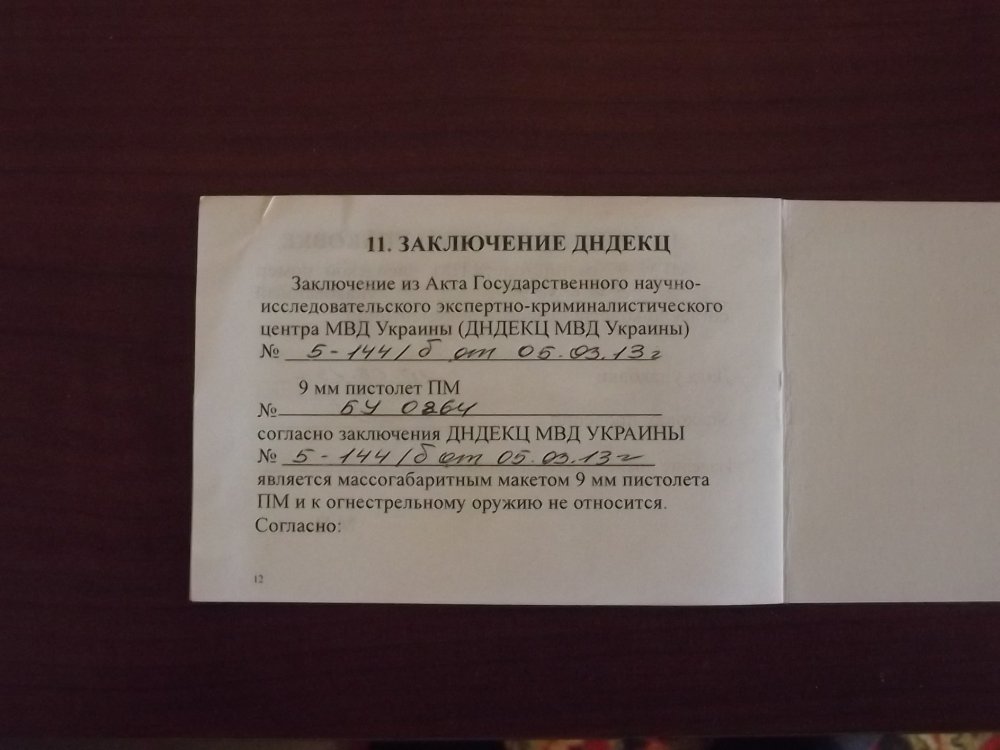 11. ЗАКЛЮЧЕНИЕ ДНДЕКЦ
Заключение из Акта Государственного научно-
исследовательского экспертно-криминалистического
центра МВД Украины (ДНДЕКЦ МВД Украины)
№ 5-144/б от 05.03.13г
9 мм пистолет ПМ
№ БУ 0264
согласно заключения ДНДЕКЦ МВД УКРАИНЫ
№ 5-144/б от 05.03.13г
является массогабаритным макетом 9 мм пистолета
ПМ и к огнестрельному оружию не относится.
Согласно:
12